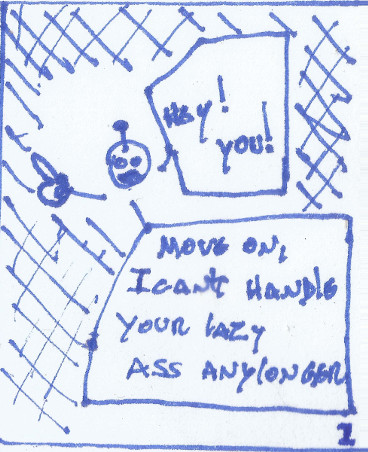 HEY!
YOU!
MOVE ON,
I CAN'T HANDLE
YOUR LAZY
ASS ANYLONGER
1